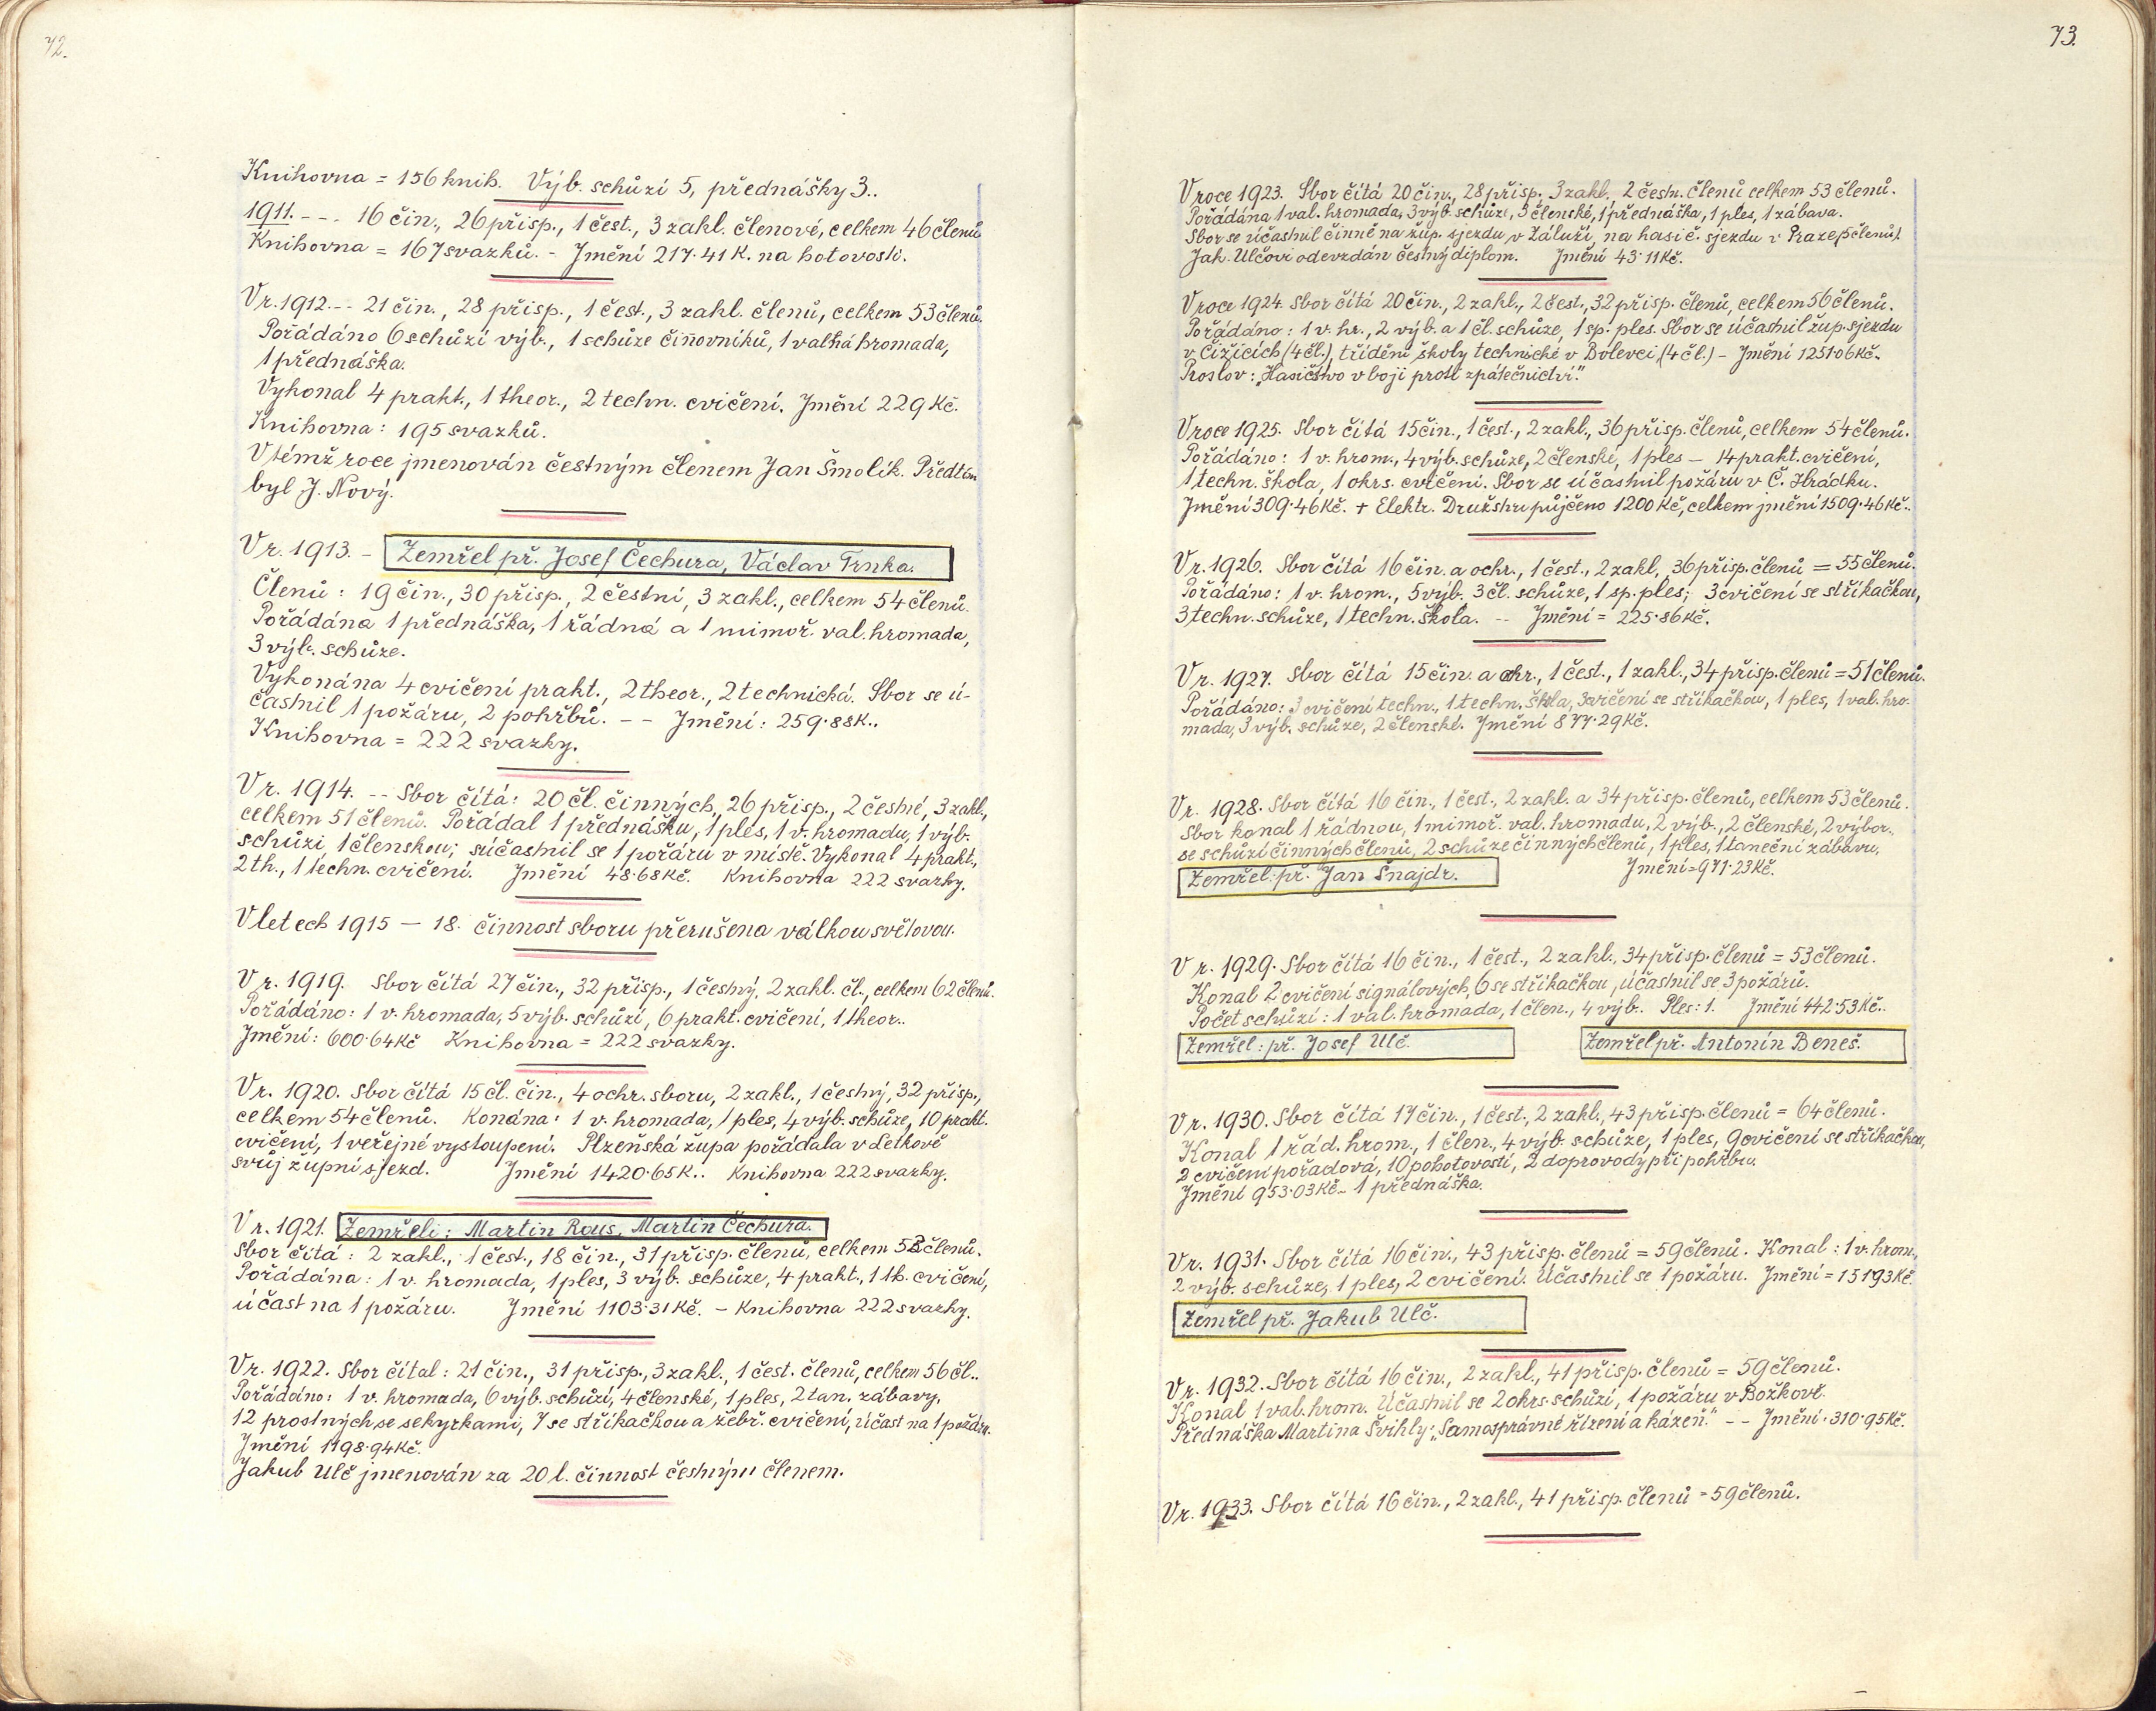 72.
Knihovna = 156 knih. Výb. schůzí 5, přednášky 3..
1911. - - - 16 čin., 26 přisp., 1 čest., 3 zakl. členové, celkem 46 členů
Knihovna = 167 svazků. - Jmění 217·41 K. na hotovosti.
V r. 1912. - - 21 čin., 28 přisp., 1 čest., 3 zakl. členů, celkem 53 členů.
Pořádáno 6 schůzí výb., 1 schůze činovníků, 1 valná hromada,
1 přednáška.
Vykonal 4 prakt., 1 theor., 2 techn. cvičení. Jmění 229 Kč.
Knihovna: 195 svazků.
V témž roce jmenován čestným členem Jan Šmolík. Předtím
byl J. Nový.
V r. 1913. - Zemřel př. Josef Čechura, Václav Trnka.
Členů: 19 čin., 30 přisp., 2 čestní, 3 zakl., celkem 54 členů.
Pořádána 1 přednáška, 1 řádná a 1 mimoř. val. hromada,
3 výb. schůze.
Vykonána 4 cvičení prakt., 2 theor., 2 technická. Sbor se ú-
častnil 1 požáru, 2 pohřbů. - - Jmění: 259·88 K..
Knihovna = 222 svazky.
V r. 1914. - - Sbor čítá: 20 čl. činných, 26 přisp., 2 čestné, 3 zakl.,
celkem 51 členů. Pořádal 1 přednášku, 1 ples, 1 v. hromadu, 1 výb.
schůzi, 1 členskou; súčastnil se 1 požáru v místě. Vykonal 4 prakt.,
2 th., 1 techn. cvičení. Jmění 48·68 Kč. Knihovna 222 svazky.
V letech 1915 — 18. činnost sboru přerušena válkou světovou.
V r. 1919. Sbor čítá 27 čin., 32 přisp., 1 čestný, 2 zakl. čl., celkem 62 členů.
Pořádáno: 1 v. hromada, 5 výb. schůzí, 6 prakt. cvičení, 1 theor..
Jmění: 600·64 Kč Knihovna = 222 svazky.
V r. 1920. Sbor čítá 15 čl. čin., 4 ochr. sboru, 2 zakl., 1 čestný, 32 přisp.,
celkem 54 členů. Konána: 1 v. hromada, 1 ples, 4 výb. schůze, 10 prakt.
cvičení, 1 veřejné vystoupení. Plzeňská župa pořádala v Letkově
svůj župní sjezd. Jmění 1420·65 K.. Knihovna 222 svazky.
V r. 1921. Zemřeli: Martin Rous, Martin Čechura.
Sbor čítá: 2 zakl., 1 čest., 18 čin., 31 přisp. členů, celkem 52 členů.
Pořádána: 1 v. hromada, 1 ples, 3 výb. schůze, 4 prakt., 1 th. cvičení,
účast na 1 požáru. Jmění 1103·31 Kč. - Knihovna 222 svazky.
V r. 1922. Sbor čítal: 21 čin., 31 přisp., 3 zakl., 1 čest. členů, celkem 56 čl..
Pořádáno: 1 v. hromada, 6 výb. schůzí, 4 členské, 1 ples, 2 tan. zábavy,
12 prostných se sekyrkami, 7 se stříkačkou a žebř. cvičení, účast na 1 požáru.
Jmění 1198·94 Kč.
Jakub Ulč jmenován za 20 l. činnost čestným členem.
73.
V roce 1923. Sbor čítá 20 čin., 28 přisp., 3 zakl., 2 čestn. členů celkem 53 členů.
Pořádána 1 val. hromada, 3 výb. schůze, 3 členské, 1 přednáška, 1 ples, 1 zábava.
Sbor se účastnil činně na žup. sjezdu v Záluží, na hasič. sjezdu v Praze (5 členů).
Jak. Ulčovi odevzdán čestný diplom. Jmění 43·11 Kč.
V roce 1924. Sbor čítá 20 čin., 2 zakl., 2 čest., 32 přisp. členů, celkem 56 členů.
Pořádáno: 1 v. hr., 2 výb. a 1 čl. schůze, 1 sp. ples. Sbor se účastnil žup. sjezdu
v Čižicích (4 čl.), třídění školy technické v Bolevci (4 čl.) - Jmění 1251·06 Kč.
Proslov: „Hasičstvo v boji proti zpátečnictví."
V roce 1925. Sbor čítá 15 čin., 1 čest., 2 zakl., 36 přisp. členů, celkem 54 členů.
Pořádáno: 1 v. hrom., 4 výb. schůze, 2 členské, 1 ples — 14 prakt. cvičení,
1 techn. škola, 1 okrs. cvičení. Sbor se účastnil požáru v Č. Hrádku.
Jmění 309·46 Kč. + Elektr. Družstvu půjčeno 1200 Kč, celkem jmění 1509·46 Kč..
V r. 1926. Sbor čítá 16 čin. a ochr., 1 čest., 2 zakl., 36 přisp. členů = 55 členů.
Pořádáno: 1 v. hrom., 5 výb. 3 čl. schůze, 1 sp. ples; 3 cvičení se stříkačkou,
3 techn. schůze, 1 techn. škola. -- Jmění = 225·86 Kč.
V r. 1927. Sbor čítá 15 čin. a ochr., 1 čest., 1 zakl., 34 přisp. členů = 51 členů.
Pořádáno: 3 cvičení techn., 1 techn. škola, 3 cvičení se stříkačkou, 1 ples, 1 val. hro-
mada, 3 výb. schůze, 2 členské. Jmění 877·29 Kč.
V r. 1928. Sbor čítá 16 čin., 1 čest., 2 zakl. a 34 přisp. členů, celkem 53 členů.
Sbor konal 1 řádnou, 1 mimoř. val. hromadu, 2 výb., 2 členské, 2 výbor..
se schůzí činných členů, 2 schůze činných členů, 1 ples, 1 taneční zábavu.
Zemřel: př. Jan Šnajdr. Jmění = 971·23 Kč.
V r. 1929. Sbor čítá 16 čin., 1 čest., 2 zakl., 34 přisp. členů = 53 členů.
Konal 2 cvičení signálových, 6 se stříkačkou, účastnil se 3 požárů.
Počet schůzí: 1 val. hromada, 1 člen., 4 výb. Ples: 1. Jmění 442·53 Kč..
Zemřel: př. Josef Ulč. Zemřel př. Antonín Beneš.
V r. 1930. Sbor čítá 17 čin., 1 čest., 2 zakl., 43 přisp. členů = 64 členů.
Konal 1 řád. hrom., 1 člen., 4 výb. schůze, 1 ples, 9 cvičení se stříkačkou,
2 cvičení pořadová, 10 pohotovostí, 2 doprovody při pohřbu.
Jmění 953·03 Kč - 1 přednáška.
V r. 1931. Sbor čítá 16 čin., 43 přisp. členů = 59 členů. Konal: 1 v. hrom.,
2 výb. schůze, 1 ples, 2 cvičení. Účastnil se 1 požáru. Jmění = 151·93 Kč.
Zemřel př. Jakub Ulč.
V r. 1932. Sbor čítá 16 čin., 2 zakl., 41 přisp. členů = 59 členů.
Konal 1 val. hrom. Účastnil se 2 okrs. schůzí, 1 požáru v Božkově.
Přednáška Martina Švihly: „Samosprávné řízení a kázeň." - - Jmění: 310·95 Kč.
V r. 1933. Sbor čítá 16 čin., 2 zakl., 41 přisp. členů = 59 členů.